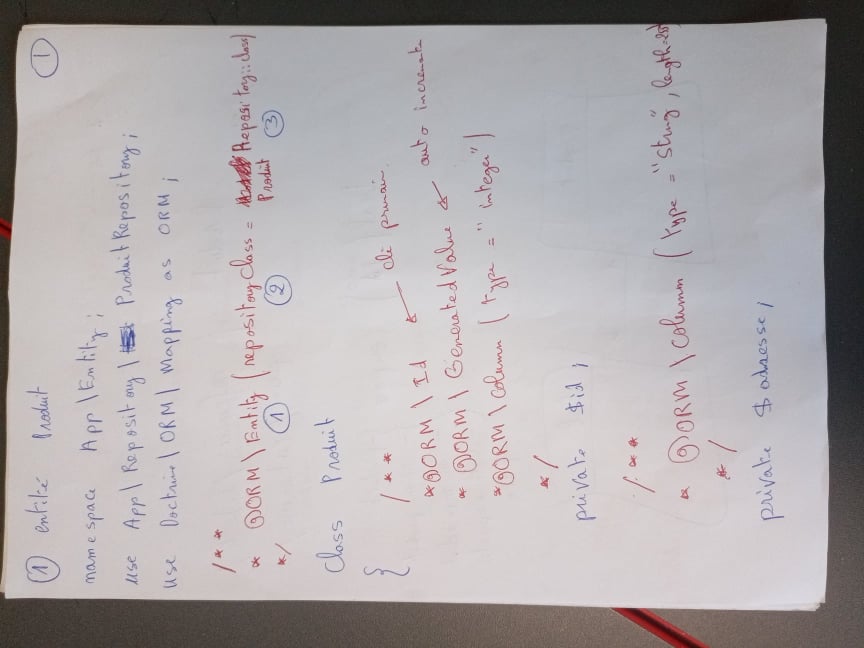 ① entité Produit
①
namespace App\Entity;
use App\Repository\ ProduitRepository;
use Doctrine\ORM\Mapping as ORM;
/**
* @ORM\Entity (repositoryClass = Produit Repository::class)
① ② ③
*/
Class Produit
{
/**
*@ORM\Id clé primain
* @ORM\GeneratedValue auto increment
*@ORM\Column (type = "integer")
*/
private $id;
/**
* @ORM\Column (type = "String", length=
*/
private $adresse;